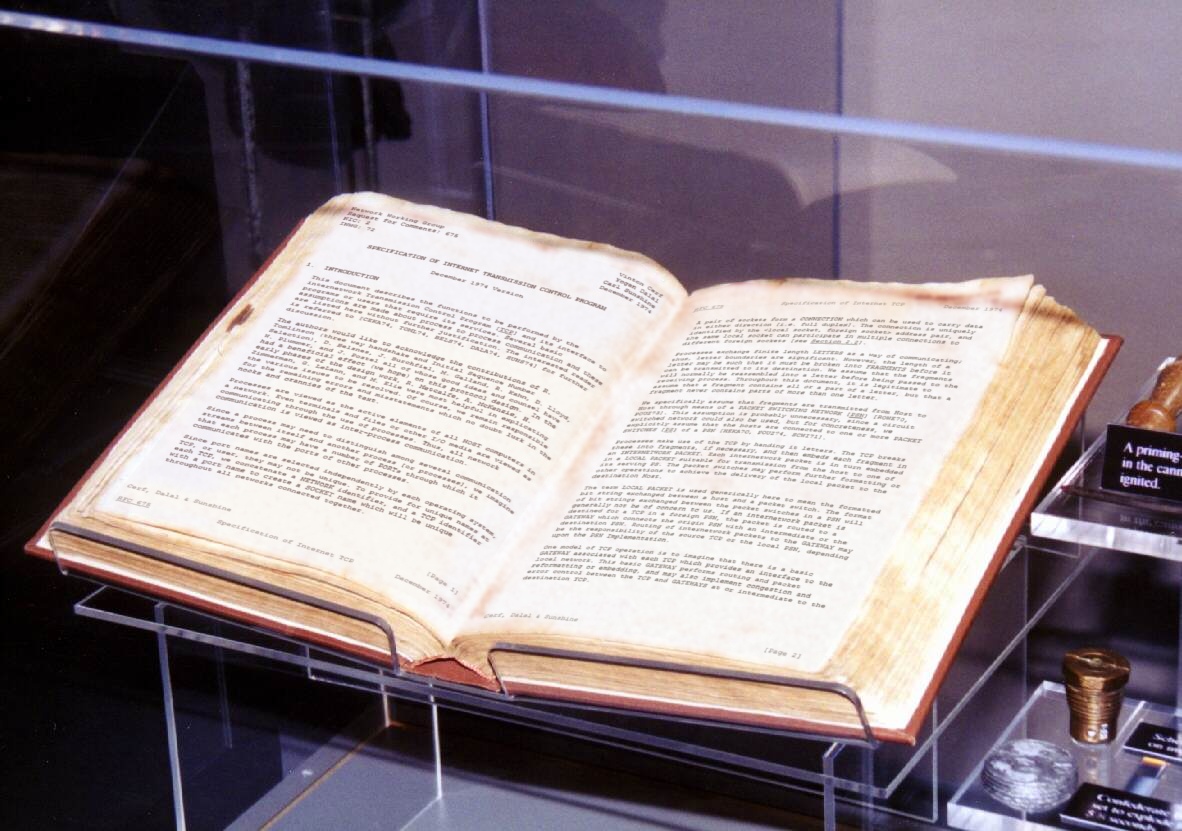 Network Working Group
Request for Comments: 675
NIC: 2
INWG: 72
Vinton Cerf
Yogen Dalal
Carl Sunshine
December 1974
SPECIFICATION OF INTERNET TRANSMISSION CONTROL PROGRAM
December 1974 Version
1. INTRODUCTION
This document describes the functions to be performed by the
internetwork Transmission Control Program [TCP] and its interface to
programs or users that require its services. Several basic
assumptions are made about process communication and these
are listed here without further justification. The interested reader
is referred to [CEKA74, TOML74, BELS74, DALA74, SUNS74] for further
discussion.
The authors would like to acknowledge the contributions of R.
Tomlinson (three way handshake and Initial Sequence Number
Selection), D. Belsnes, J. Burchfiel, M. Galland, R. Kahn, D. Lloyd,
W. Plummer, and J. Postel all of whose good ideas and counsel have
had a beneficial effect (we hope) on this protocol design. In the
early phases of the design work, R. Metcalfe, A. McKenzie, H.
Zimmerman, G. LeLann, and M. Elie were most helpful in explicating
the various issues to be resolved. Of course, we remain responsible
for the remaining errors and misstatements which no doubt lurk in the
nooks and crannies of the text.
Processes are viewed as the active elements of all HOST computers in
a network. Even terminals and files or other I/O media are viewed as
communicating through the use of processes. Thus, all network
communication is viewed as inter-process communication.
Since a process may need to distinguish among several communication
streams between itself and another process [or processes], we imagine
that each process may have a number of PORTs through which it
communicates with the ports of other processes.
Since port names are selected independently by each operating system,
TCP, or user, they may not be unique. To provide for unique names at
each TCP, we concatenate a NETWORK identifier, and a TCP identifier
with a port name to create a SOCKET name which will be unique
throughout all networks connected together.
Cerf, Dalal & Sunshine
[Page 1]
RFC 675
Specification of Internet TCP
December 1974
RFC 675
Specification of Internet TCP
December 1974
A pair of sockets form a CONNECTION which can be used to carry data
in either direction [i.e. full duplex]. The connection is uniquely
identified by the <local socket, foreign socket> address pair, and
the same local socket can participate in multiple connections to
different foreign sockets [see Section 2.2].
Processes exchange finite length LETTERS as a way of communicating;
thus, letter boundaries are significant. However, the length of a
letter may be such that it must be broken into FRAGMENTS before it
can be transmitted to its destination. We assume that the fragments
will normally be reassembled into a letter before being passed to the
receiving process. Throughout this document, it is legitimate to
assume that a fragment contains all or a part of a letter, but that a
fragment never contains parts of more than one letter.
We specifically assume that fragments are transmitted from Host to
Host through means of a PACKET SWITCHING NETWORK [PSN] [ROWE70,
POUZ73]. This assumption is probably unnecessary, since a circuit
switched network could also be used, but for concreteness, we
explicitly assume that the hosts are connected to one or more PACKET
SWITCHES [PS] of a PSN [HEKA70, POUZ74, SCWI71].
Processes make use of the TCP by handing it letters. The TCP breaks
these into fragments, if necessary, and then embeds each fragment in
an INTERNETWORK PACKET. Each internetwork packet is in turn embedded
in a LOCAL PACKET suitable for transmission from the host to one of
its serving PS. The packet switches may perform further formatting or
other operations to achieve the delivery of the local packet to the
destination Host.
The term LOCAL PACKET is used generically here to mean the formatted
bit string exchanged between a host and a packet switch. The format
of bit strings exchanged between the packet switches in a PSN will
generally not be of concern to us. If an internetwork packet is
destined for a TCP in a foreign PSN, the packet is routed to a
GATEWAY which connects the origin PSN with an intermediate or the
destination PSN. Routing of internetwork packets to the GATEWAY may
be the responsibility of the source TCP or the local PSN, depending
upon the PSN Implementation.
One model of TCP operation is to imagine that there is a basic
GATEWAY associated with each TCP which provides an interface to the
local network. This basic GATEWAY performs routing and packet
reformatting or embedding, and may also implement congestion and
error control between the TCP and GATEWAYS at or intermediate to the
destination TCP.
Cerf, Dalal & Sunshine
[Page 2]
A priming-
in the cann
ignited.
on
Confederate
set to explode